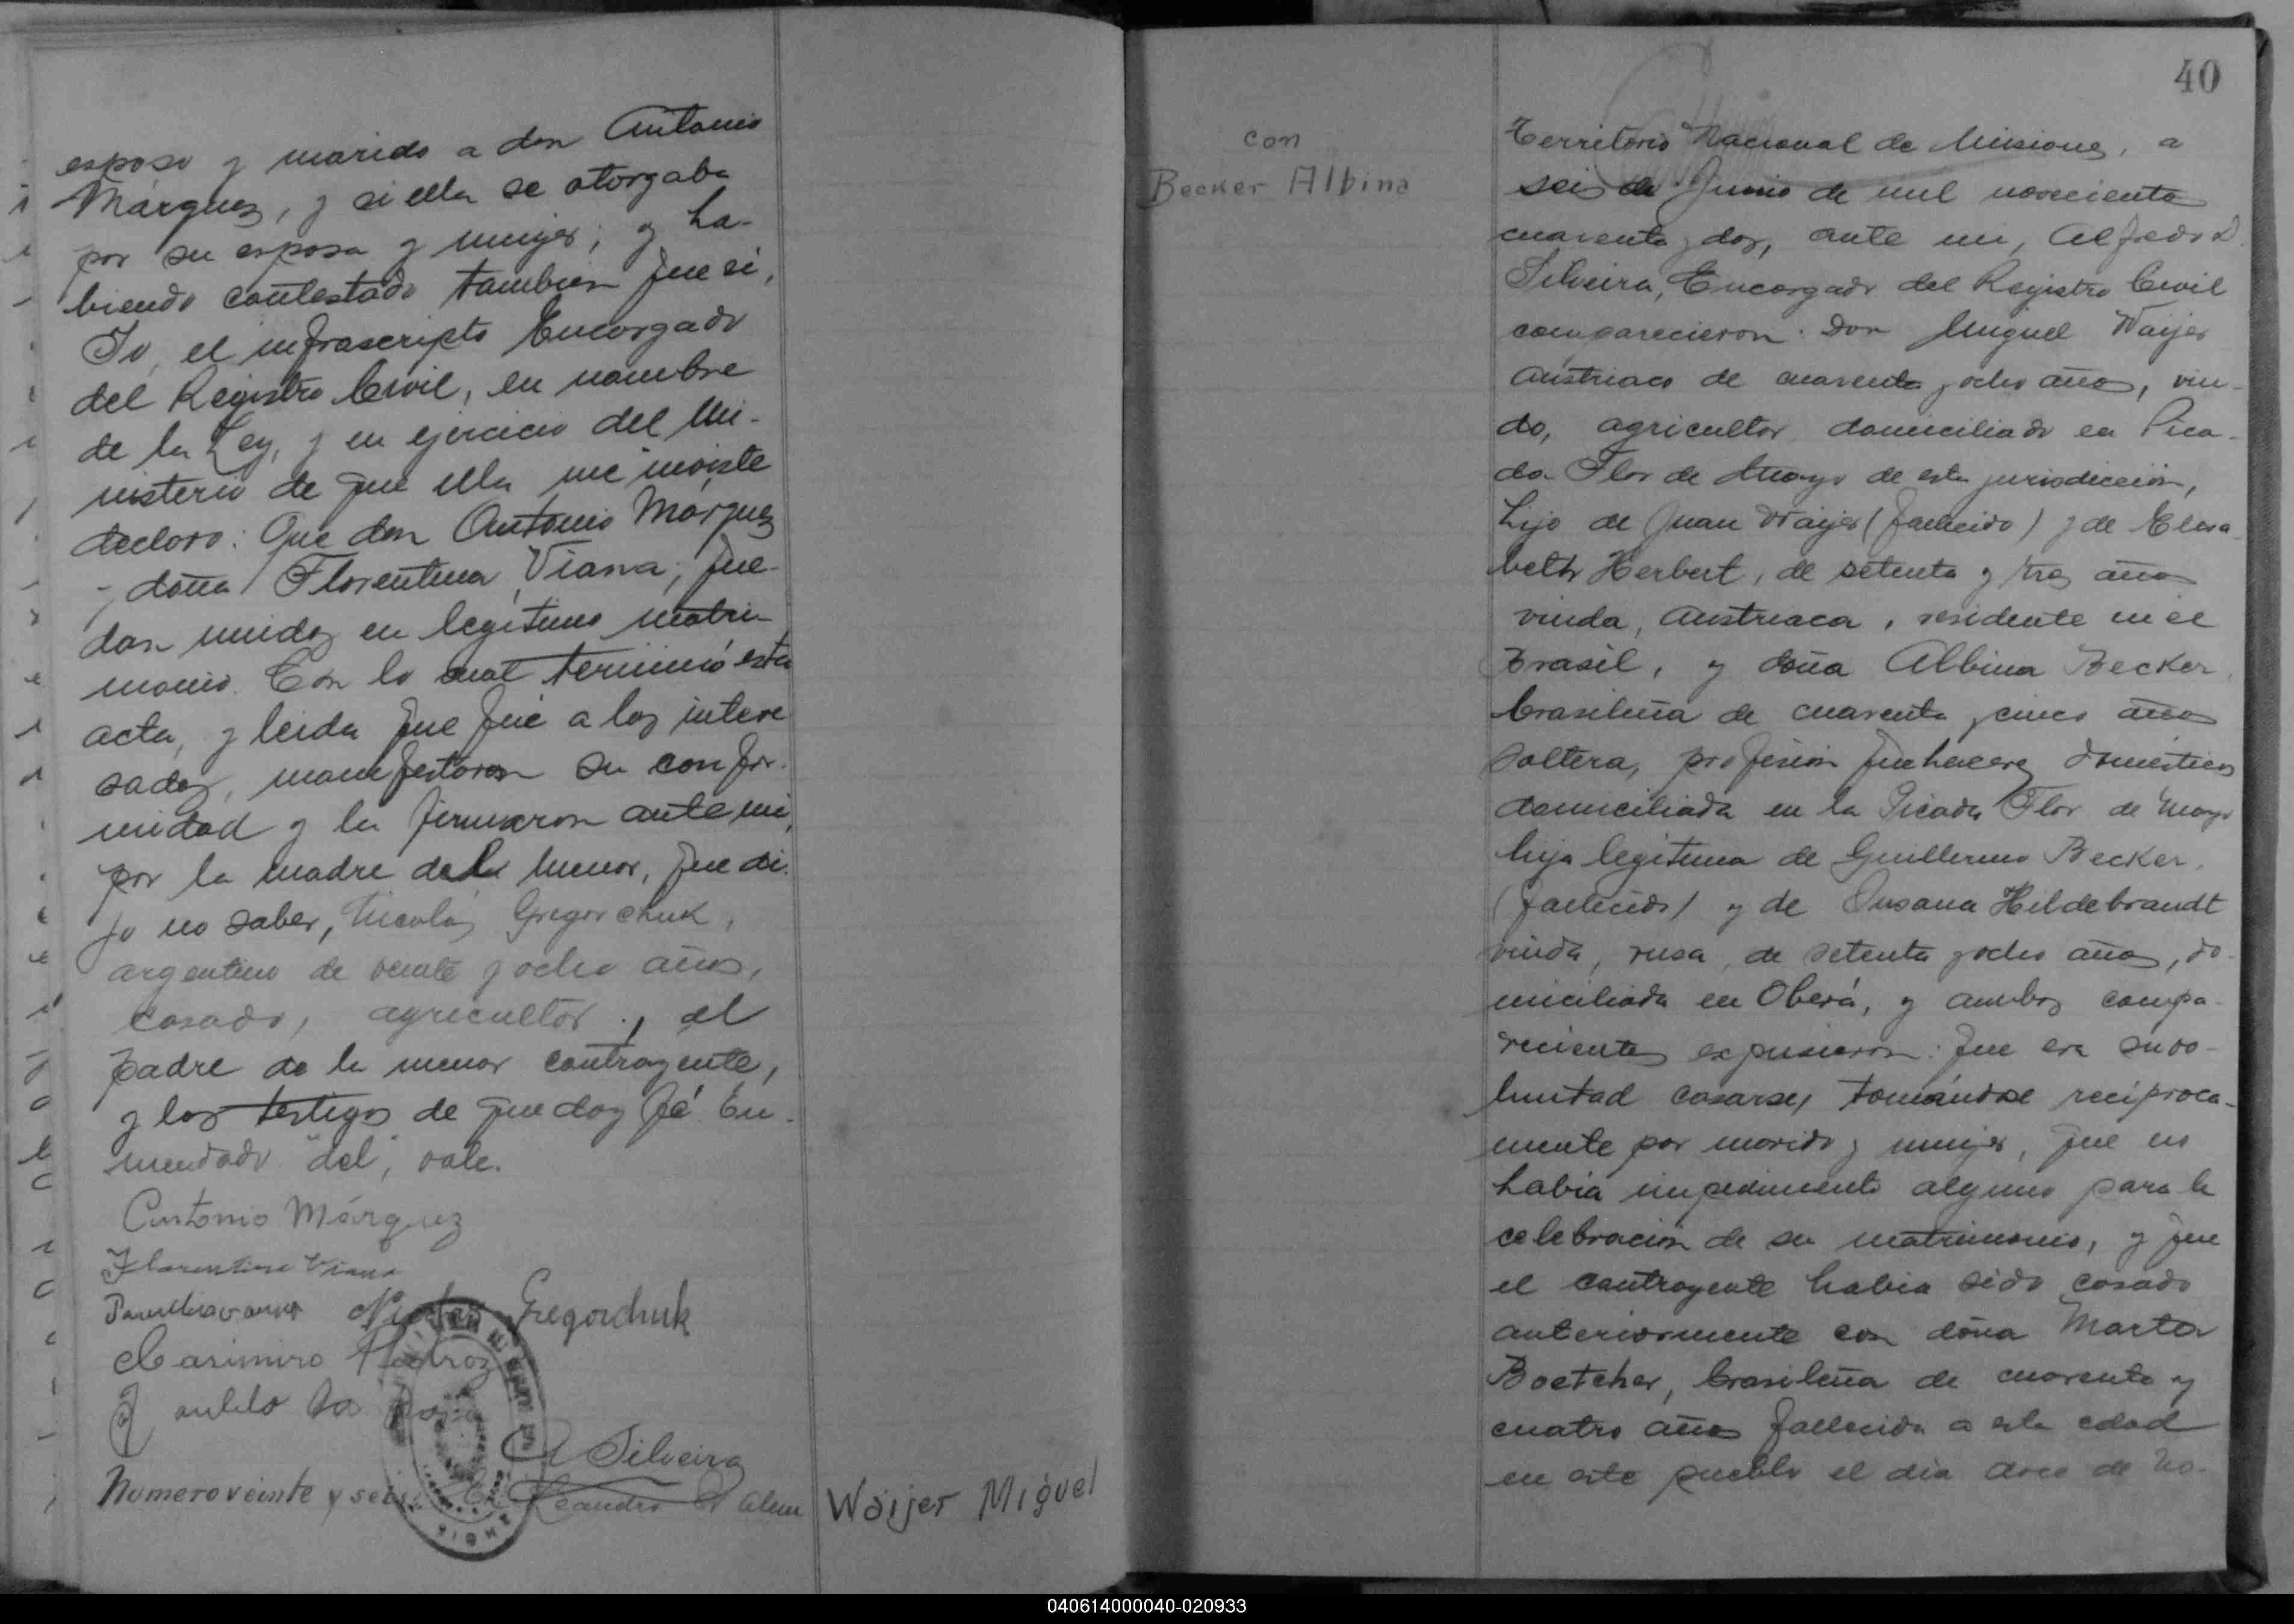 esposo y marido a don Antonio
Márquez, y si ella se otorgaba
por su esposa y mujer; y ha-
biendo contestado tambien que si,
Yo, el infrascripto Encargado
del Registro Civil, en nombre
de la Ley, y en ejercicio del Mi-
nisterio de que ella me inviste
declaro: Que don Antonio Márquez
y doña Florentina Viana, que-
dan unidos en legítimo matri-
monio. Con lo cual terminó esta
acta, y leida que fué a los intere
sados, manifestaron su confor-
midad y la firmaron ante mi,
por la madre del menor, que di-
jo no saber, Nicolás Gregorchuk,
argentino de veinte y ocho años,
casado, agricultor, el
padre de la menor contrayente,
y los testigos de que doy fé. En-
mendado "del", vale.
Antonio Márquez
Florentina Viana
Nicolas Gregorchuk
Casimiro
A Silveira
Numero veinte y seis. En Leandro N Alem
Waijer Miguel
40
con
Becker Albina
Territorio Nacional de Misiones, a
seis de Junio de mil novecientos
cuarenta y dos, ante mi, Alfredo D.
Silveira, Encargado del Registro Civil
comparecieron: Don Miguel Waijer
austriaco de cuarenta y ocho años, viu-
do, agricultor domiciliado en Pica-
da Flor de Mayo de esta jurisdicción,
hijo de Juan Waijer (fallecido) y de Elisa-
beth Herbert, de setenta y tres años
viuda, austriaca, residente en el
Brasil, y doña Albina Becker,
brasileña de cuarenta y cinco años
soltera, profesión quehaceres domésticos
domiciliada en la Picada Flor de Mayo
hija legítima de Guillermo Becker,
(fallecido) y de Susana Hildebrandt
viuda, rusa, de setenta y ocho años, do-
miciliada en Oberá, y ambos compa-
recientes expusieron: que era su vo-
luntad casarse, tomándose reciproca-
mente por marido y mujer, que no
había impedimento alguno para la
celebración de su matrimonio, y que
el contrayente habia sido casado
anteriormente con doña Marta
Boetcher, brasileña de cuarenta y
cuatro años fallecida a esta edad
en este pueblo el dia doce de No-
040614000040-020933